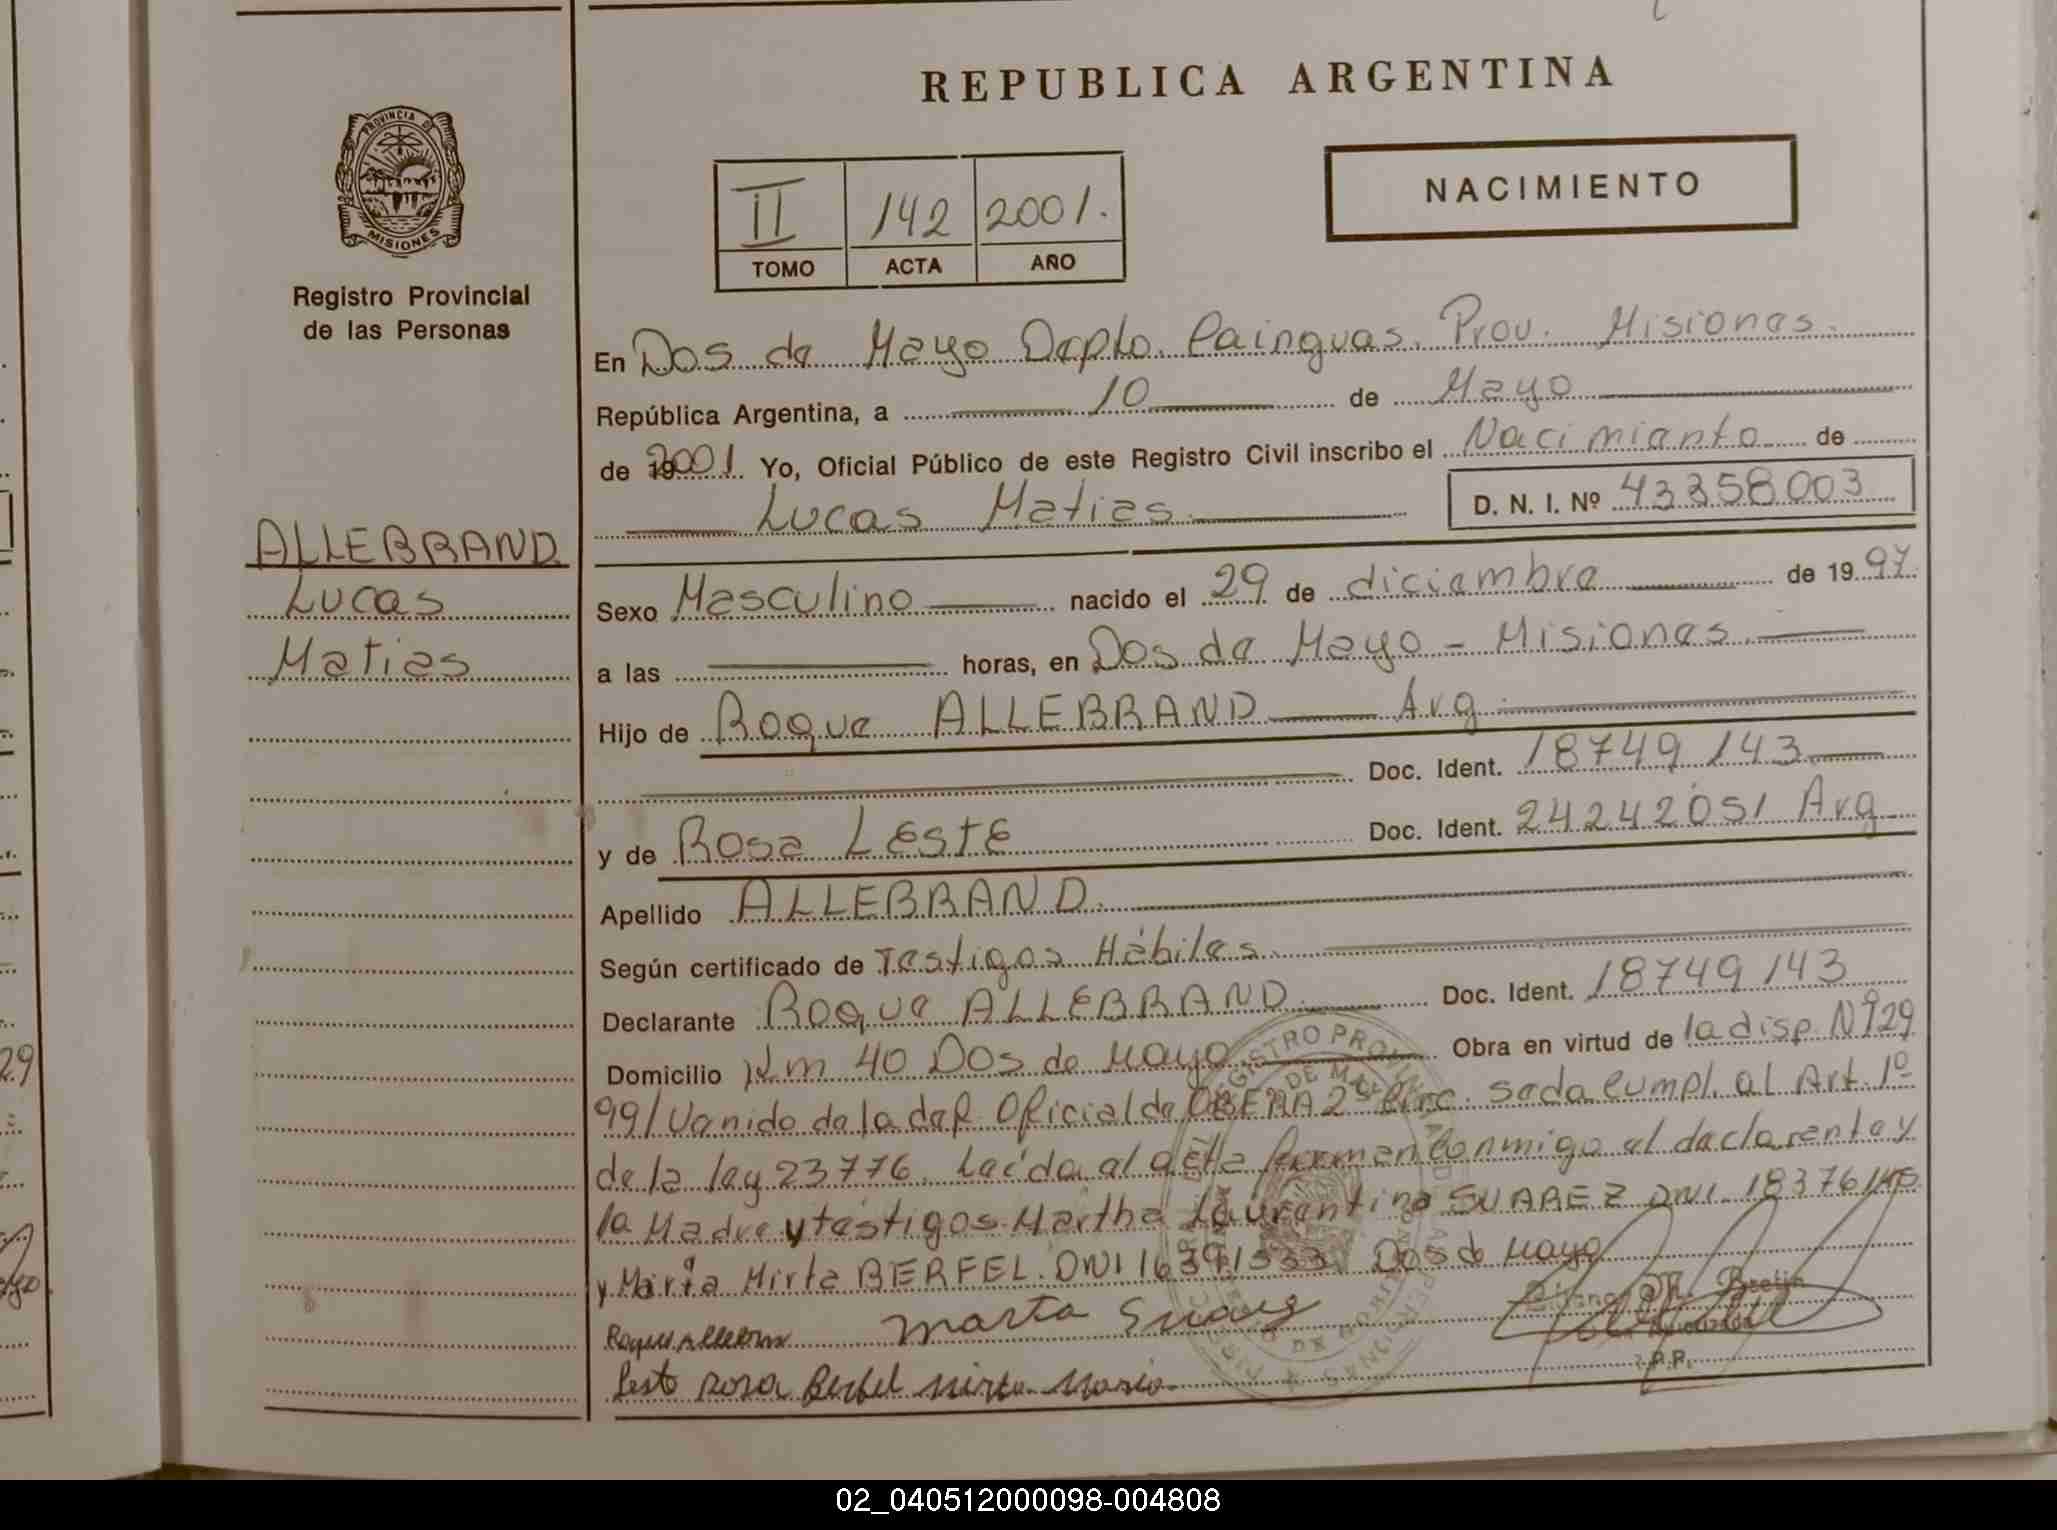 REPUBLICA ARGENTINA
PROVINCIA DE
MISIONES
Registro Provincial
de las Personas
II 142 2001.
TOMO ACTA AÑO
NACIMIENTO
En Dos de Mayo Depto. Cainguas. Prov. Misiones.
República Argentina, a 10 de Mayo
de 192001. Yo, Oficial Público de este Registro Civil inscribo el Nacimiento de
Lucas Matias D. N. I. Nº 43358003
ALLEBRAND
Lucas
Matias
Sexo Masculino nacido el 29 de diciembre de 1997
a las horas, en Dos de Mayo - Misiones.
Hijo de Roque ALLEBRAND Arg
Doc. Ident. 18749143
y de Rosa LESTE Doc. Ident. 24242051 Arg
Apellido ALLEBRAND.
Según certificado de Testigos Hábiles.
Declarante Roque ALLEBRAND. Doc. Ident. 18749143
Domicilio Km 40 Dos de Mayo Obra en virtud de la disp. Nº 29
99/ Venido de la del. Oficial de OBERA 2º Circ. se da Cumpl. al Art. 1º
de la ley 23776. Leída al acta firman Conmigo el declarante y
la Madre y testigos Martha Laurentina SUAREZ DNI. 18376
y María Mirta BERFEL. DNI 16391533 Dos de Mayo
Roque Allebran Marta Suarez
Leste Rosa Berfel Mirta María
P.P.
29
02_040512000098-004808